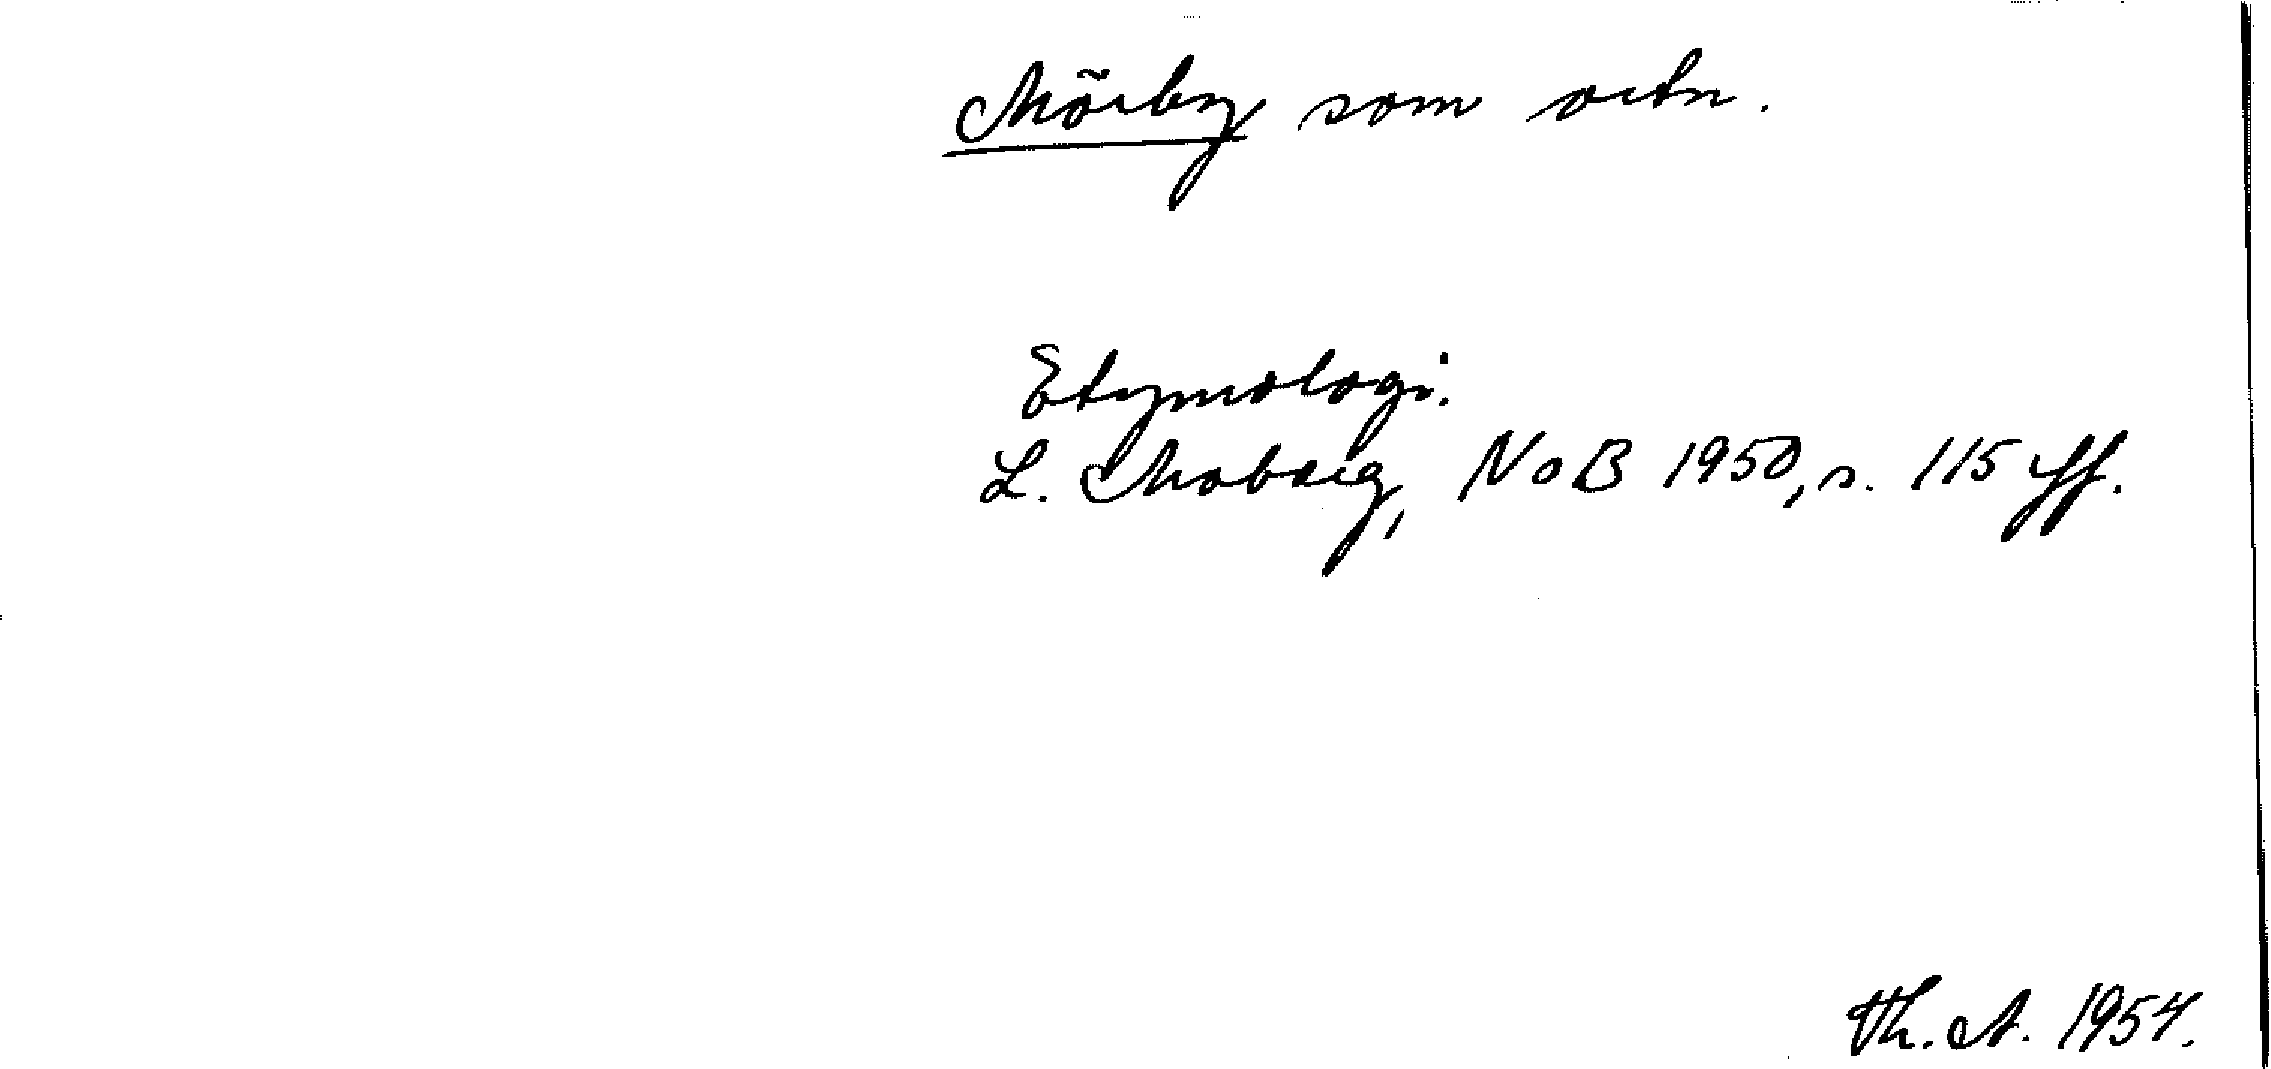 Mörby som ortn.
Etymologi.
L. Moberg, NoB 1950, s. 115 ff.
Th. A. 1954.